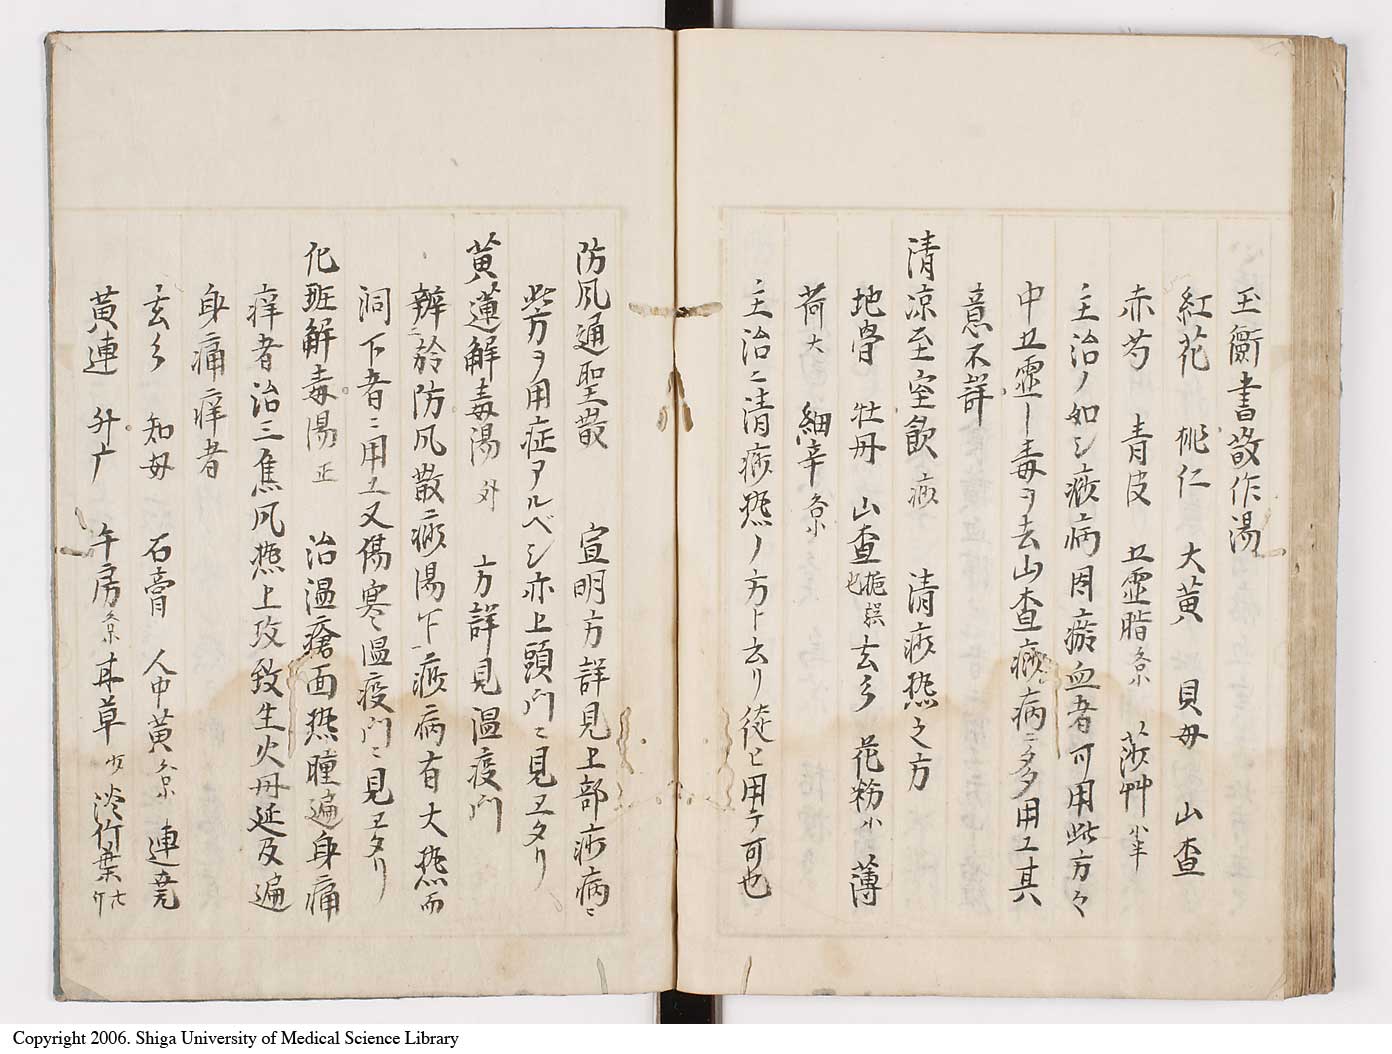 玉衡書散作湯
紅花 桃仁 大黄 貝母 山査
赤芍 青皮 五霊脂各 莎艸
主治ノ如シ痧病因瘀血者可用此方々
中五霊ー毒ヲ去山査痧病ニ多用エ其
意不詳
清凉至宝飲 痧 清痧𤍠之方
地骨 牡丹 山査梔誤也 玄參 花粉小 薄
荷大 細辛各小
主治ニ清痧𤍠ノ方ト云リ徒ニ用テ可也
防風通聖散 宣明方詳見上部痧病ニ
此方ヲ用症アルベシ亦上頭門ニ見ヱタリ
黄連解毒湯 外 方詳見温疫門
辨ニ於防風散痧湯下痧病有大𤍠而
洞下者ニ用ユ又傷寒温疫門ニ見ヱタリ
化斑解毒湯 正 治温瘡面𤍠腫遍身痛
痒者治三焦風𤍠上攻致生火丹延及遍
身痛痒者
玄參 知母 石膏 人中黄 連堯
黄連 升广 牛房 甘草 淡竹葉
Copyright 2006. Shiga University of Medical Science Library